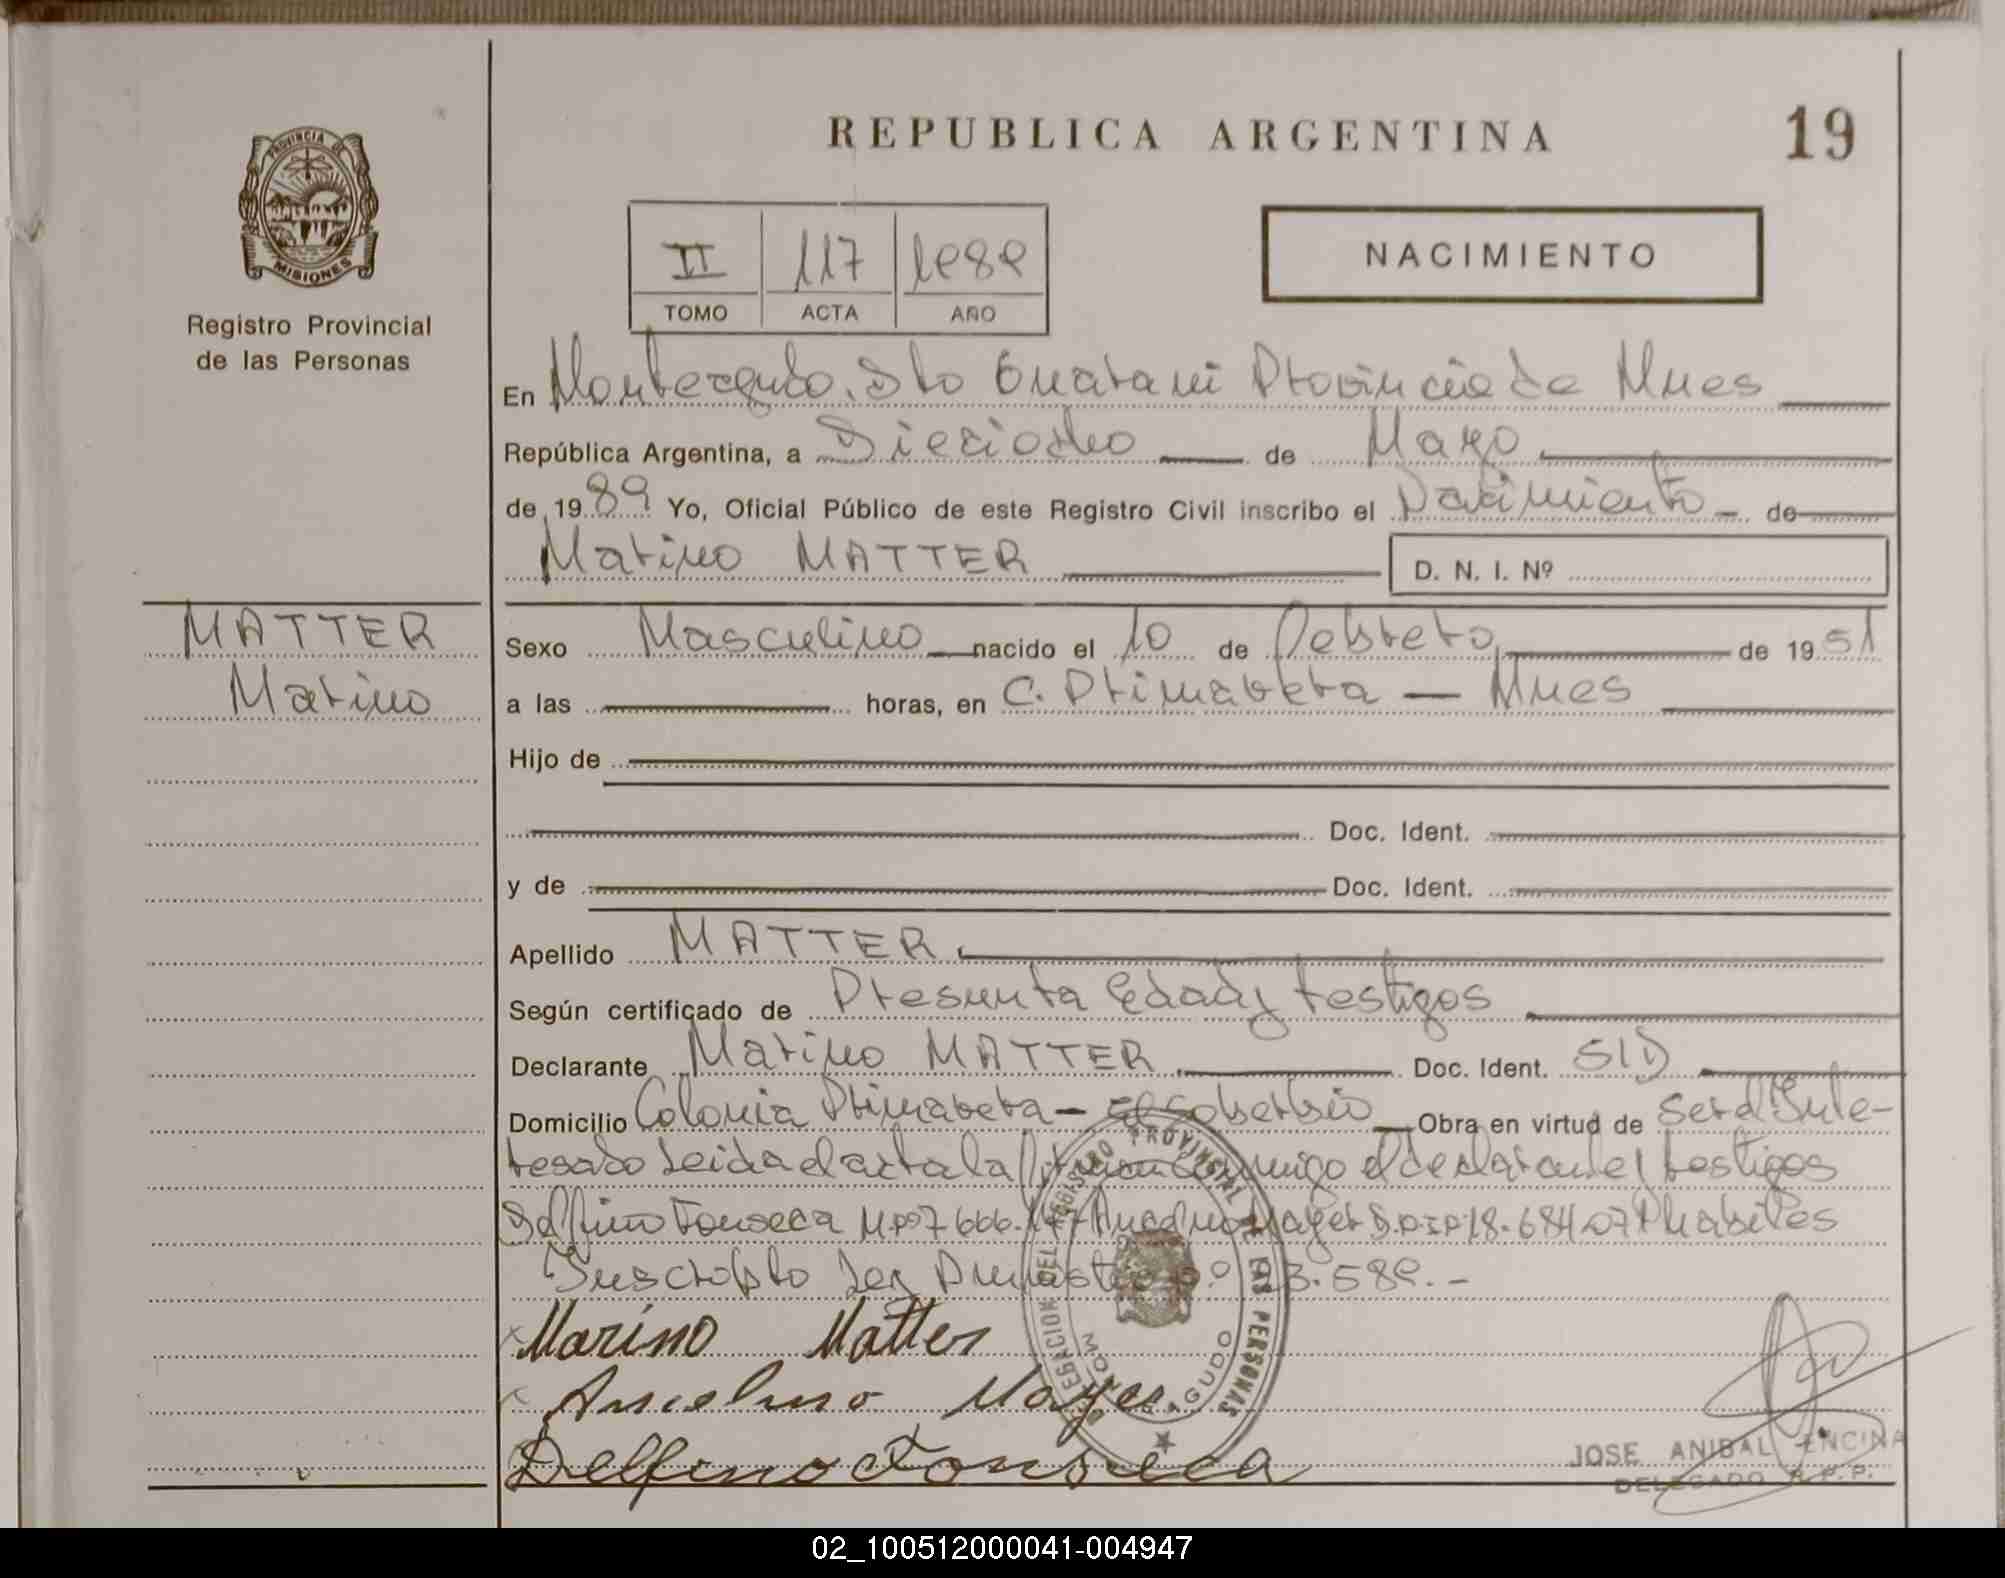 REPUBLICA ARGENTINA
19
PROVINCIA DE
MISIONES
Registro Provincial
de las Personas
II 117 1989
TOMO ACTA AÑO
NACIMIENTO
En Monteagudo. Dto Guarani Provincia de Mnes
República Argentina, a Dieciocho de Mayo
de 1989 Yo, Oficial Público de este Registro Civil inscribo el Nacimiento de
Marino MATTER
D. N. I. Nº
MATTER
Marino
Sexo Masculino nacido el 10 de Febrero de 1951
a las horas, en C. Primavera — Mnes
Hijo de
Doc. Ident.
y de Doc. Ident.
Apellido MATTER
Según certificado de Presunta Edad y testigos
Declarante Marino MATTER Doc. Ident. S/D
Domicilio Colonia Primavera — El Soberbio Obra en virtud de ser el Inte-
resado Leida el acta la firman conmigo el declarante y testigos
Delfino Fonseca Anselmo Mayer habiles
Inscripto Ley 23.589.-
Marino Matter
Anselmo Mayer
Delfino Fonseca
DELEGACION DEL REGISTRO PROVINCIAL DE LAS PERSONAS
MONTEAGUDO
JOSE ANIBAL ENCINA
DELEGADO R.P.P.
02_100512000041-004947